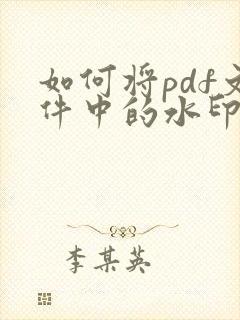 如何将pdf文
件中的水印
李某英